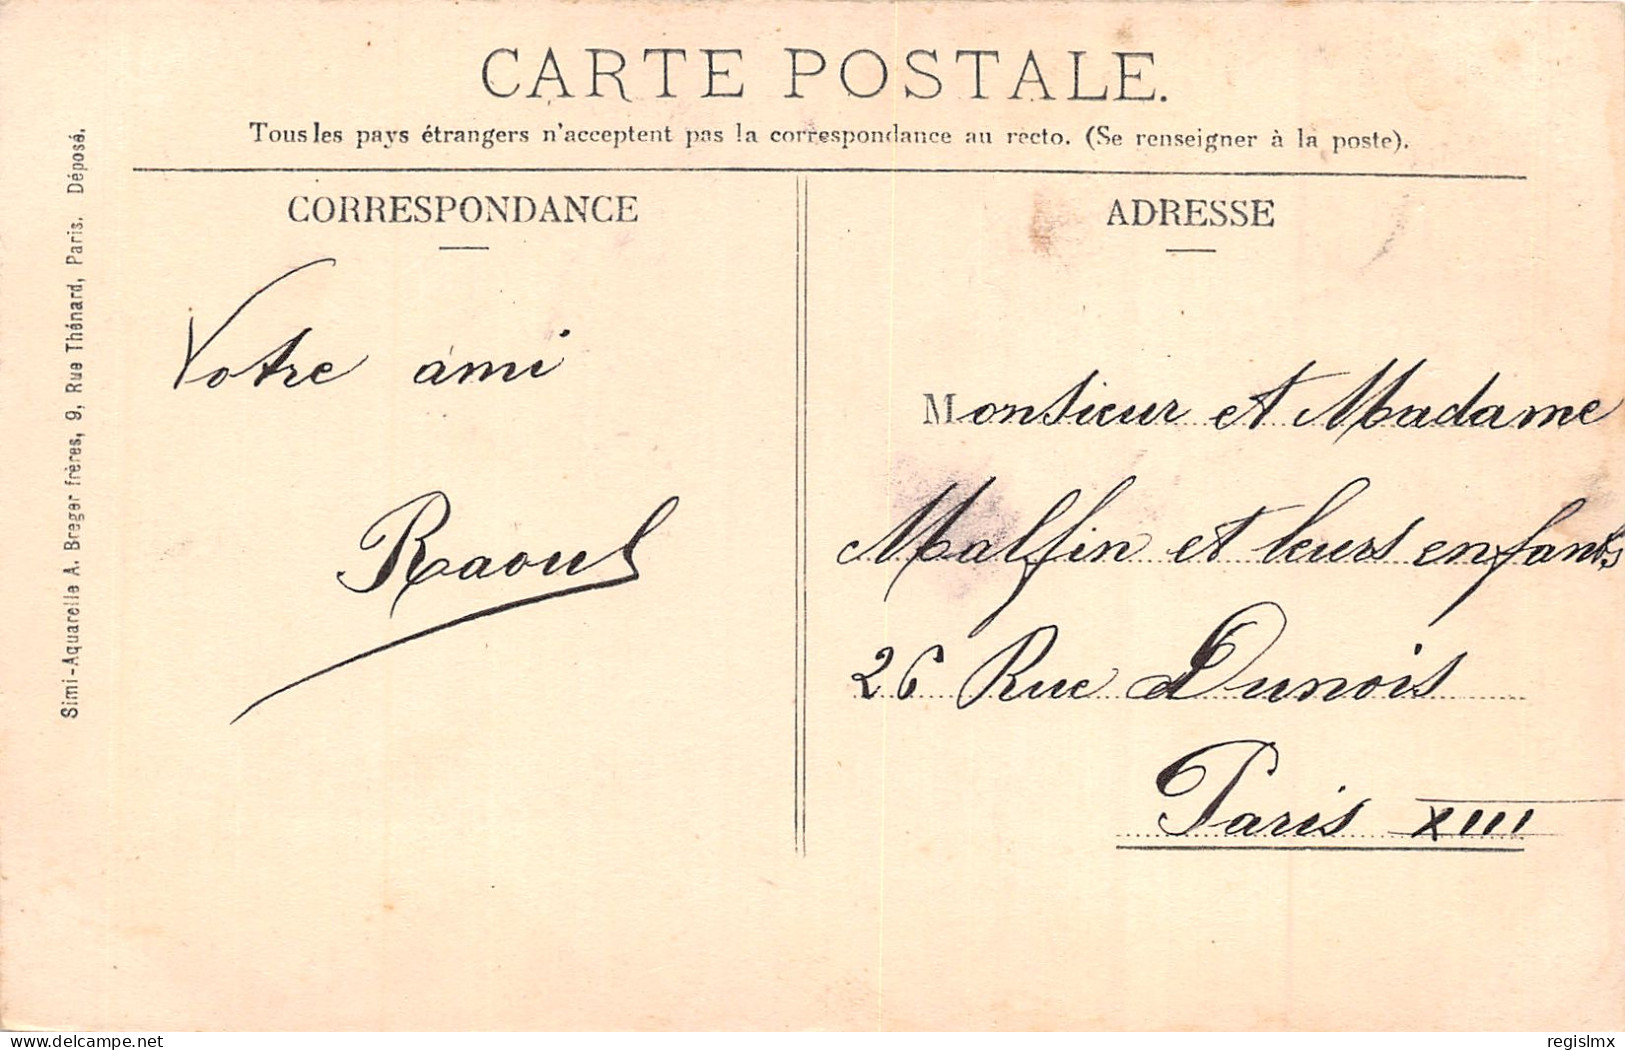 CARTE POSTALE.
Tous les pays étrangers n'acceptent pas la correspondance au recto. (Se renseigner à la poste).
Simi-Aquarelle A. Breger frères, 9, Rue Thénard, Paris. Déposé.
CORRESPONDANCE
Votre ami
Raoul
ADRESSE
Monsieur et Madame
Malfin et leurs enfants
26 Rue Dunois
Paris XIII
delcampe.net
regislmx